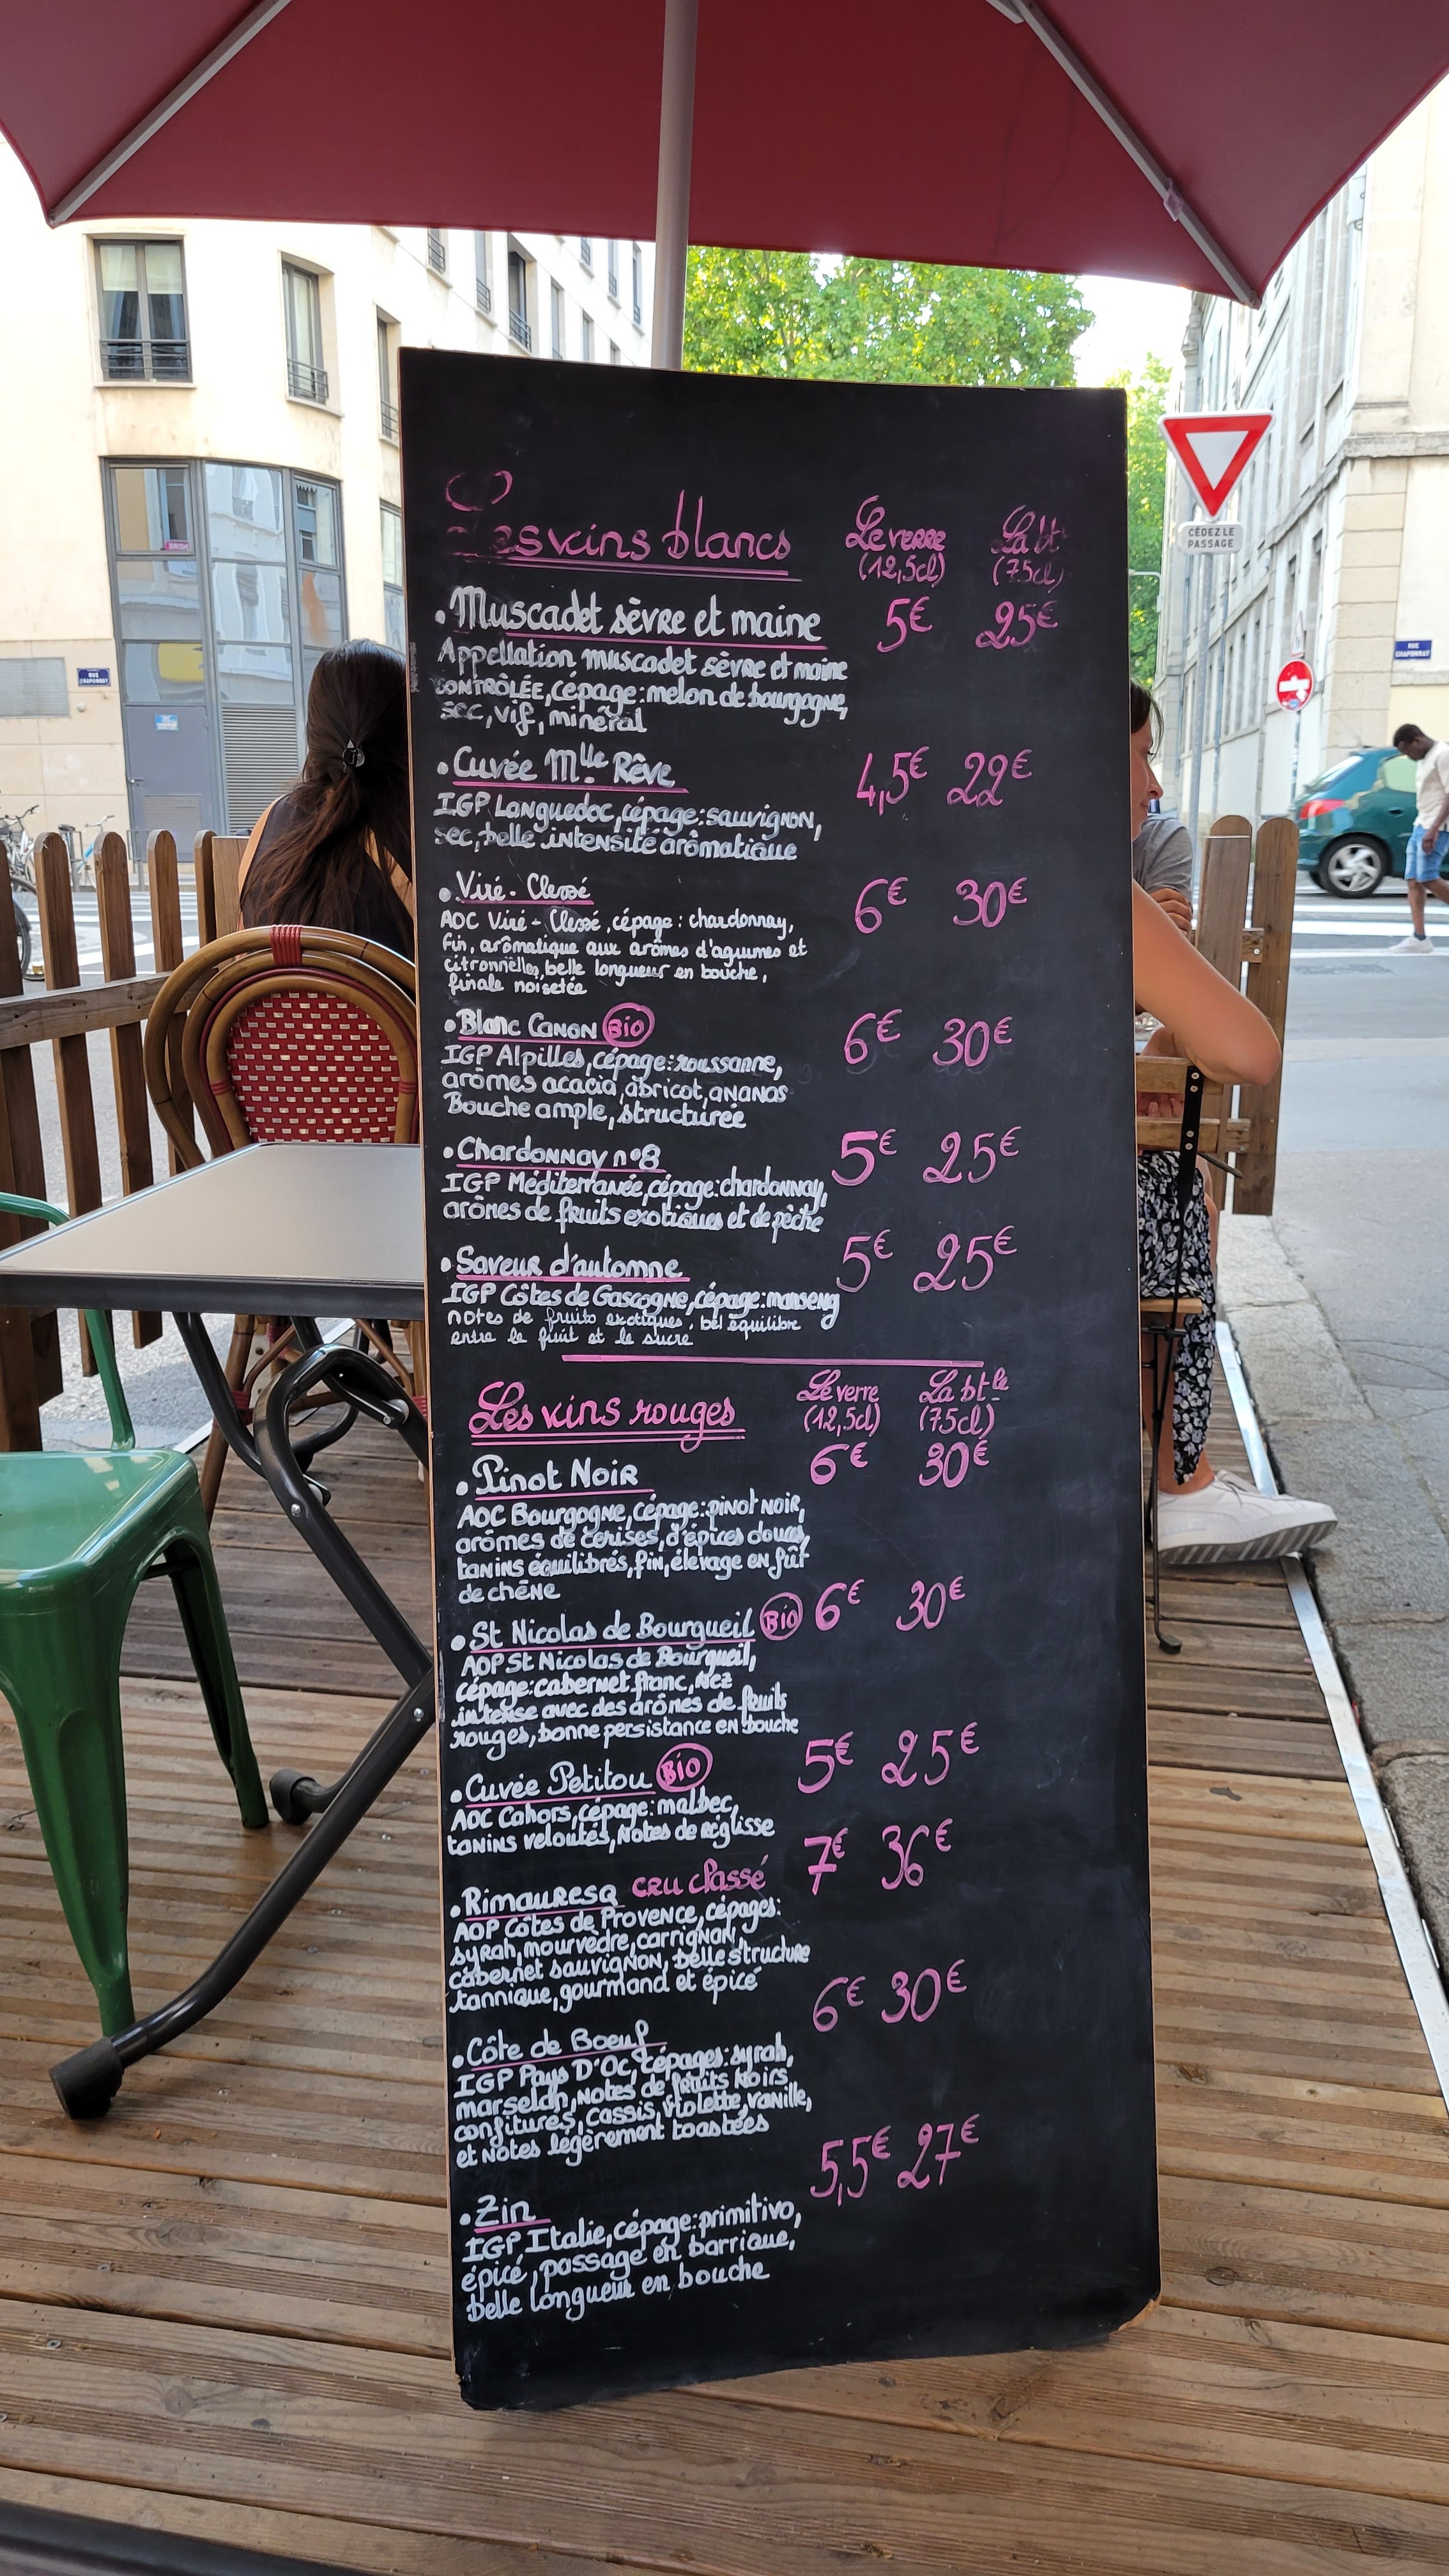 Les vins blancs Le verre La bt
(12,5cl) (75cl)
• Muscadet sèvre et maine 5€ 25€
Appellation muscadet sèvre et maine
CONTRÔLÉE, cépage: melon de bourgogne,
sec, vif, minéral
• Cuvée Mlle Rêve 4,5€ 22€
IGP Languedoc, cépage: sauvignon,
sec, belle intensité arômatique
• Viré-Clessé 6€ 30€
AOC Viré-Clessé, cépage: chardonnay,
fin, arômatique aux arômes d'agrumes et
citronnelles, belle longueur en bouche,
finale noisetée
• Blanc Canon Bio 6€ 30€
IGP Alpilles, cépage: roussanne,
arômes acacia, abricot, ananas
Bouche ample, structurée
• Chardonnay n°8 5€ 25€
IGP Méditerranée, cépage: chardonnay,
arômes de fruits exotiques et de pêche
• Saveur d'automne 5€ 25€
IGP Côtes de Gascogne, cépage: manseng
notes de fruits exotiques, bel équilibre
entre le fruit et le sucre
Les vins rouges Le verre La btle
(12,5cl) (75cl)
• Pinot Noir 6€ 30€
AOC Bourgogne, cépage: pinot noir,
arômes de cerises, d'épices douces,
tanins équilibrés, fin, élevage en fût
de chêne
• St Nicolas de Bourgueil Bio 6€ 30€
AOP St Nicolas de Bourgueil,
cépage: cabernet franc, Nez
intense avec des arômes de fruits
rouges, bonne persistance en bouche
• Cuvée Petitou Bio 5€ 25€
AOC Cahors, cépage: malbec,
tanins veloutés, notes de réglisse
• Rimauresq CRU classé 7€ 36€
AOP Côtes de Provence, cépages:
syrah, mourvèdre, carrignan,
cabernet sauvignon, belle structure
tannique, gourmand et épicé
• Côte de Boeuf 6€ 30€
IGP Pays D'Oc, cépages: syrah,
marselan, notes de fruits noirs
confiturés, cassis, violette, vanille,
et notes légèrement toastées
• Zin 5,5€ 27€
IGP Italie, cépage: primitivo,
épicé, passage en barrique,
belle longueur en bouche
CÉDEZ LE
PASSAGE
RUE
CHAPONNAY
RUE
CHAPONNAY